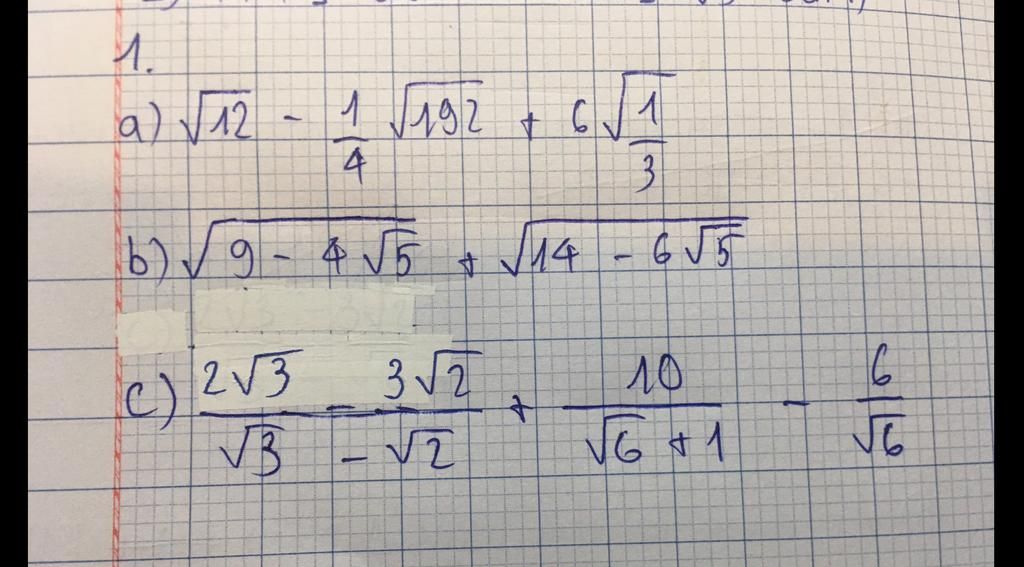 1.
a) √12 - 1/4 √192 + 6 √(1/3)
b) √(9 - 4√5) + √(14 - 6√5)
c) (2√3 - 3√2)/(√3 - √2) + 10/(√6 + 1) - 6/√6